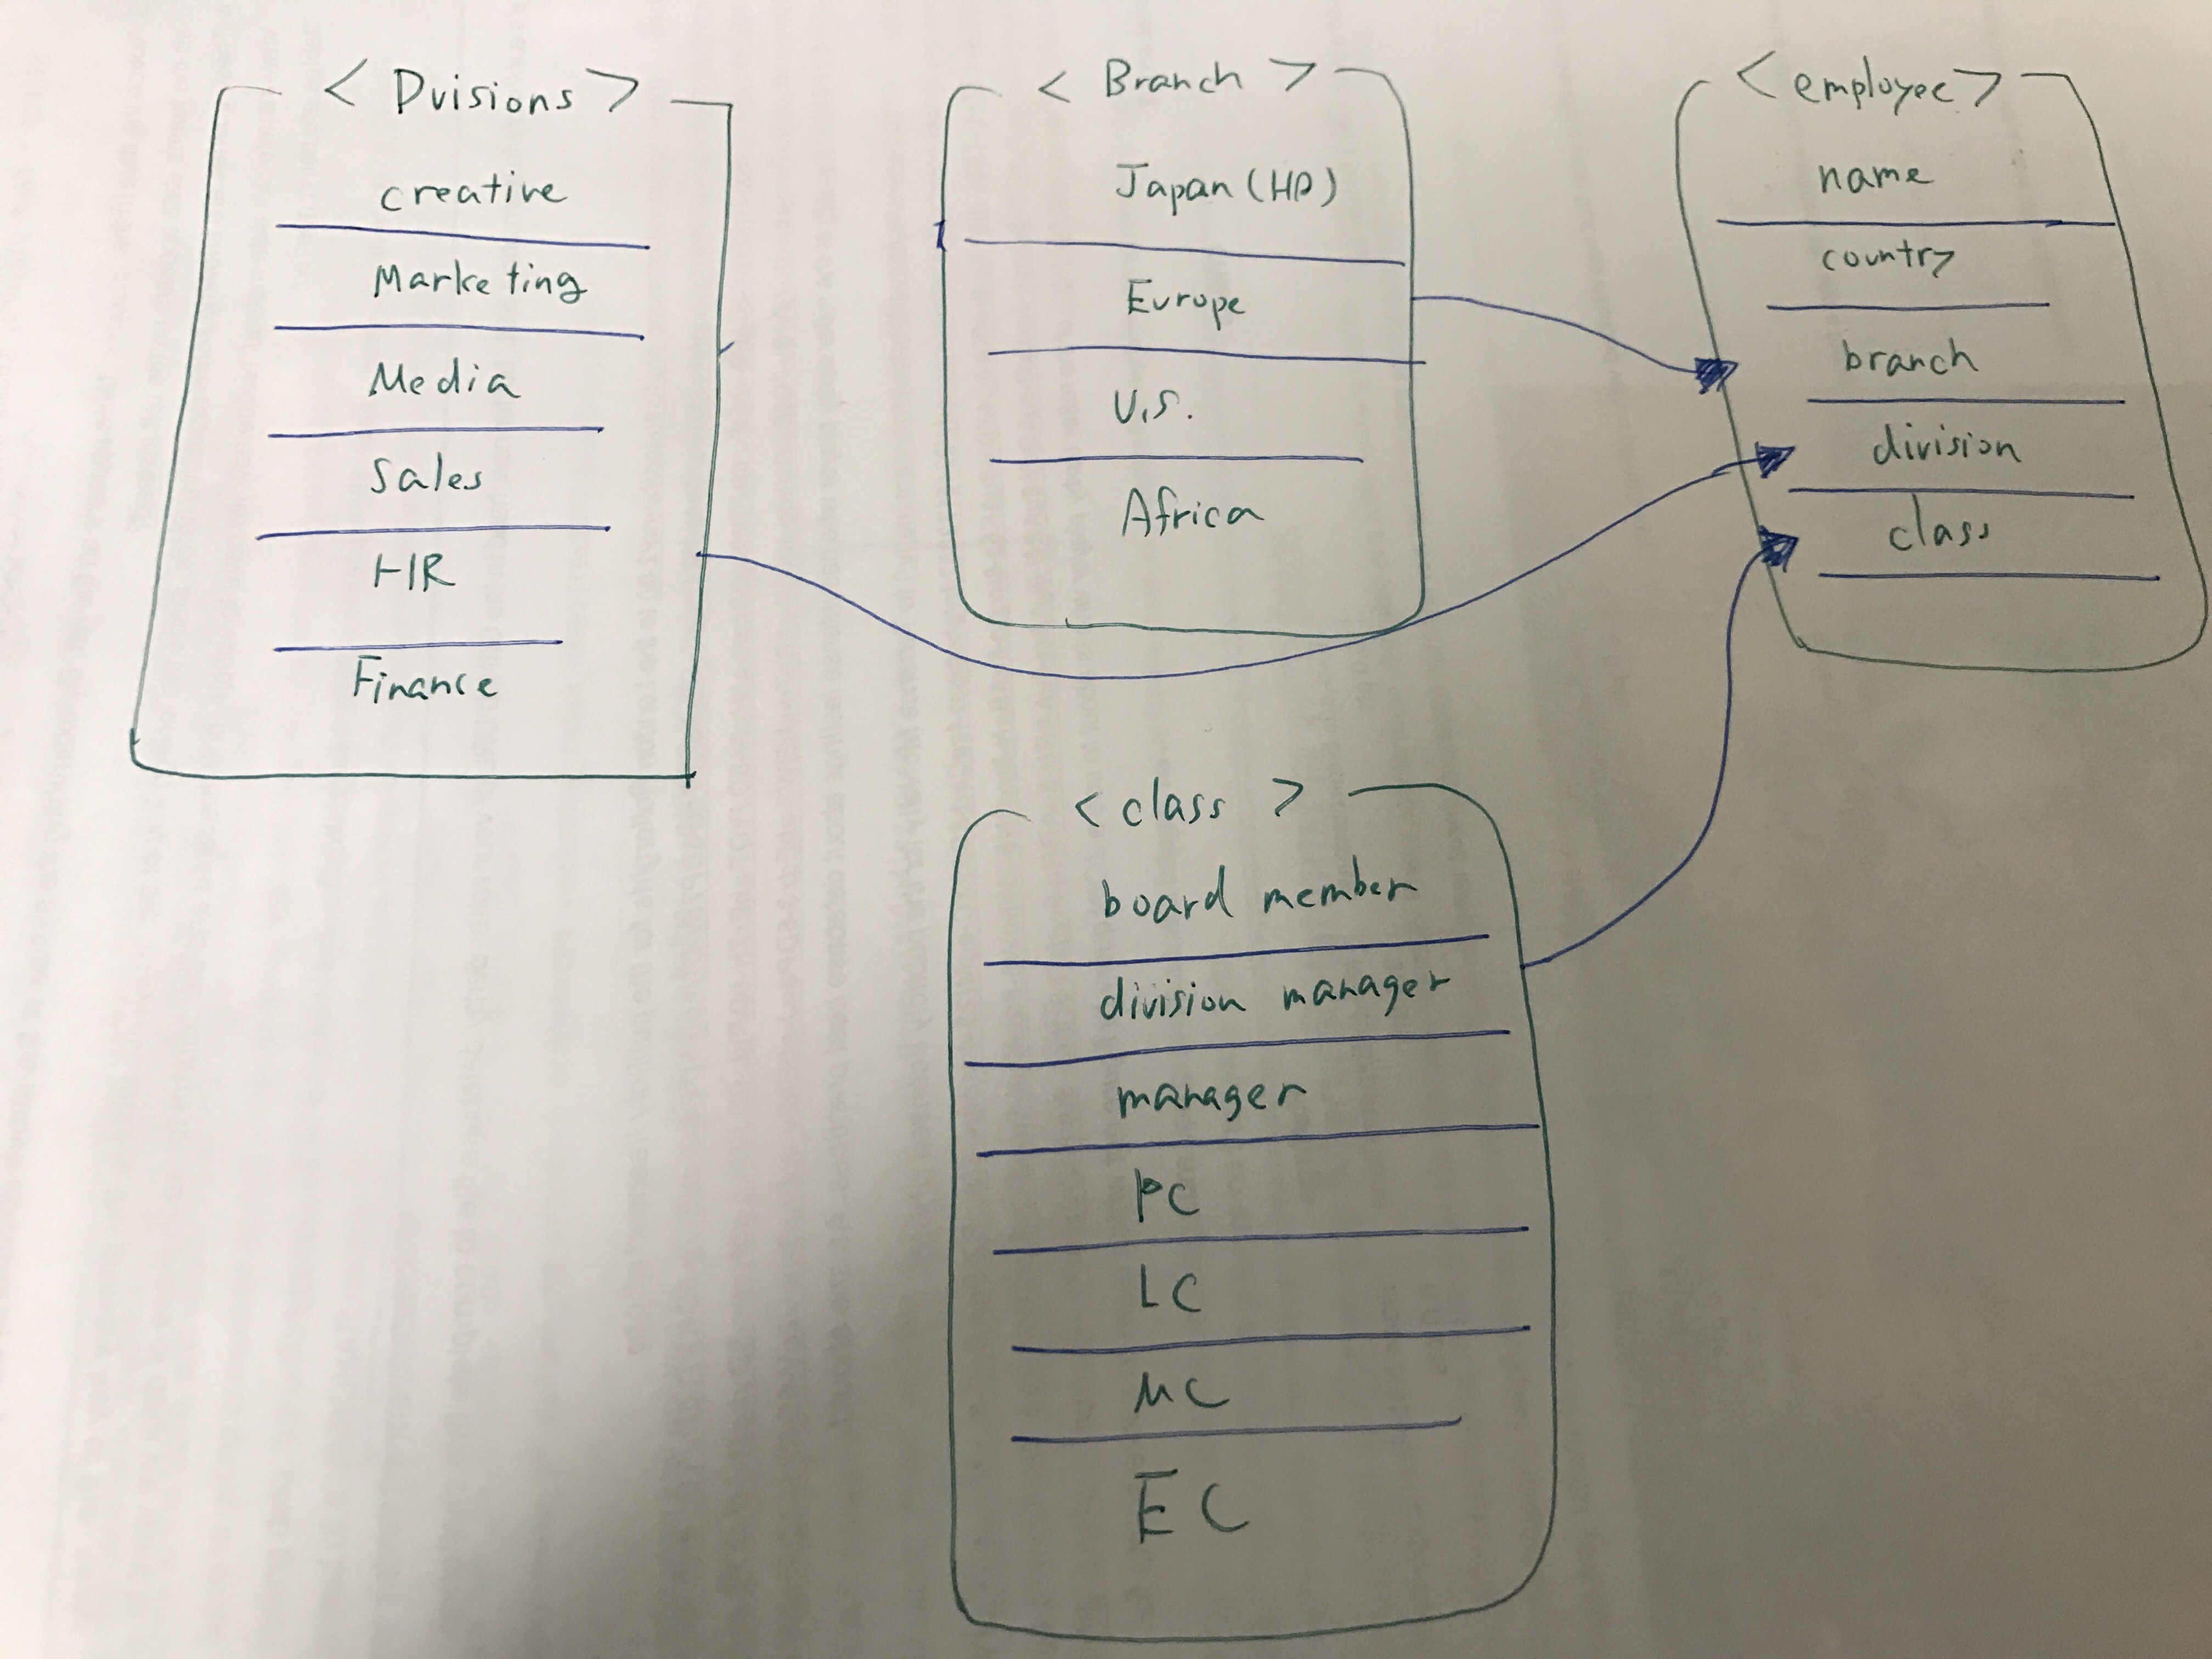 < Dvisions >
creative
Marketing
Media
Sales
HR
Finance
< Branch >
Japan (HD)
Europe
U.S.
Africa
<employee>
name
country
branch
division
class
< class >
board member
division manager
manager
PC
LC
MC
EC